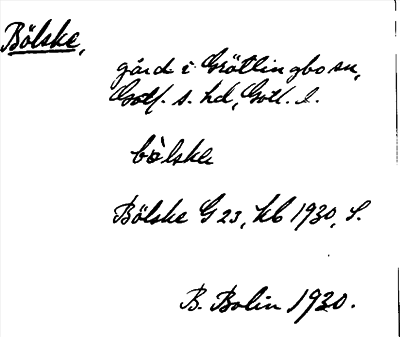 Bölske,
gård i Grötlingbo sn,
Gotl. s. hd, Gotl. l.
bòlske
Bölske G 23, kb 1930, S.
B. Bolin 1930.